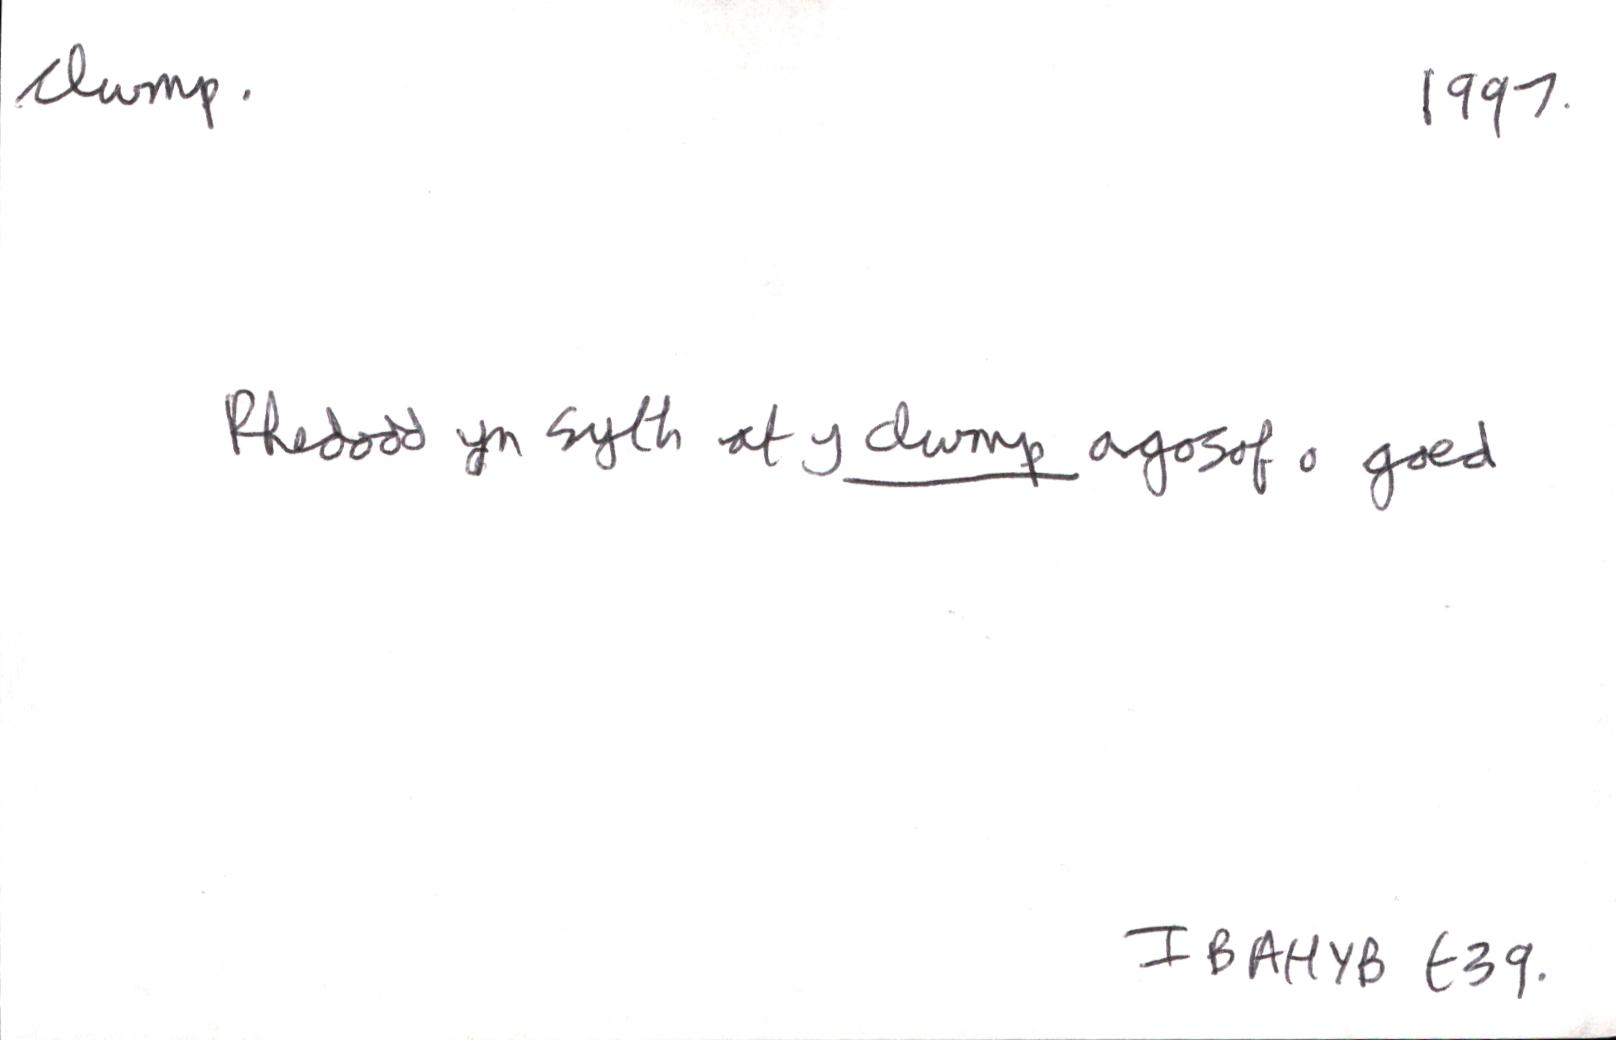 clwmp.
1997.
Rhedodd yn syth at y clwmp agosof o goed
IBAHYB t39.